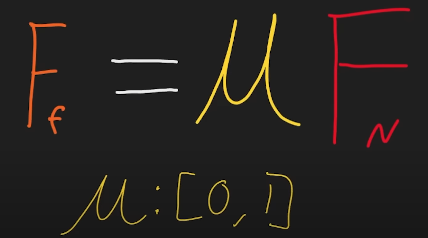 F_f = μ F_N
μ : [0, 1]